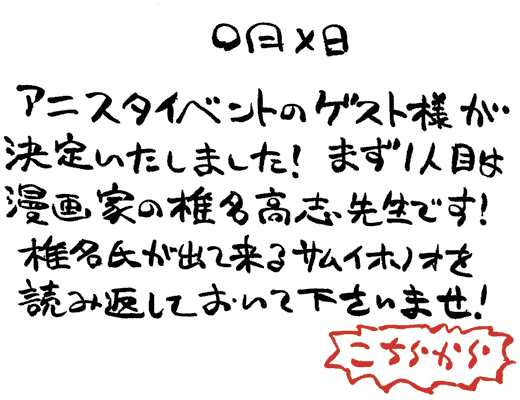 〇月×日
アニスタイベントのゲスト様が
決定いたしました!まず1人目は
漫画家の椎名高志先生です!
椎名氏が出て来るサムイホノオを
読み返しておいて下さいませ!
こちらから